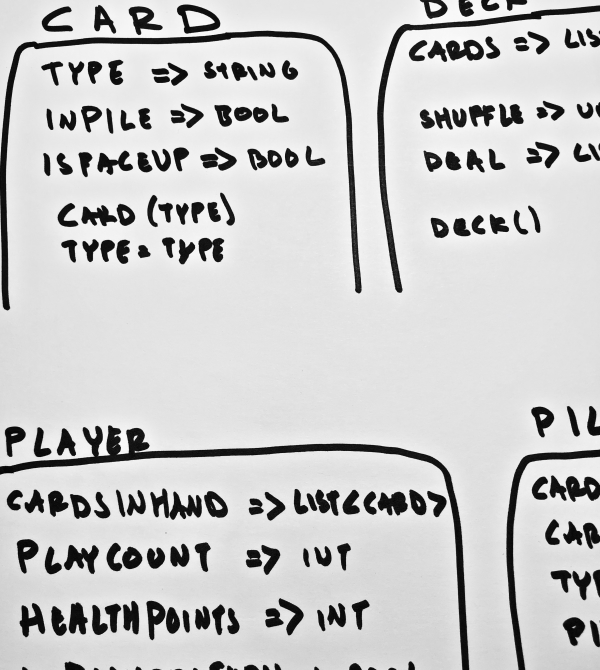 CARD
TYPE => STRING
INPILE => BOOL
ISFACEUP => BOOL
CARD (TYPE)
TYPE = TYPE
DECK
CARDS => LIS
SHUFFLE =>
DEAL => LI
DECK()
PLAYER
CARDSINHAND => LIST<CARD>
PLAYCOUNT => INT
HEALTHPOINTS => INT
PIL
CARD
CAR
TYP
PI